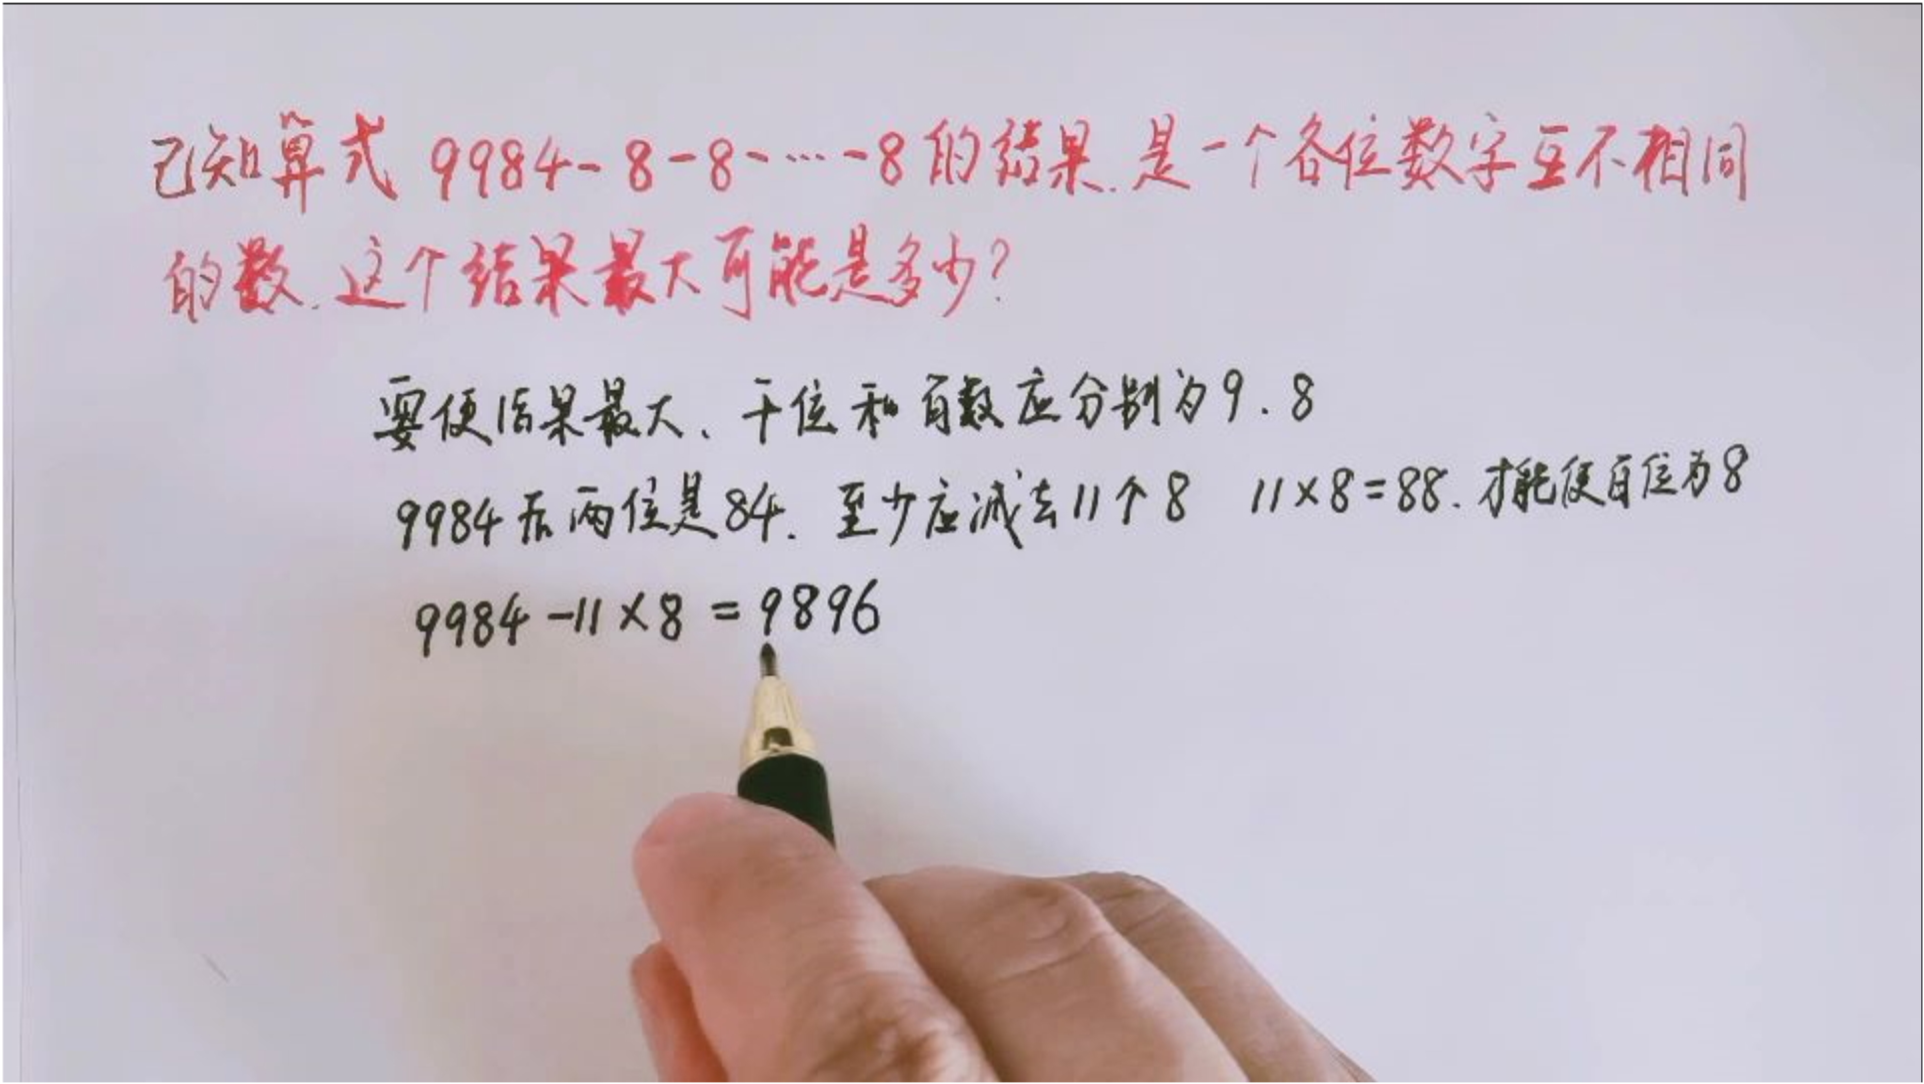 已知算式 9984-8-8-…-8的结果.是一个各位数字互不相同
的数.这个结果最大可能是多少?
要使结果最大、千位和百数应分别为9.8
9984后两位是84.至少应减去11个8 11×8=88.才能使百位为8
9984-11×8=9896